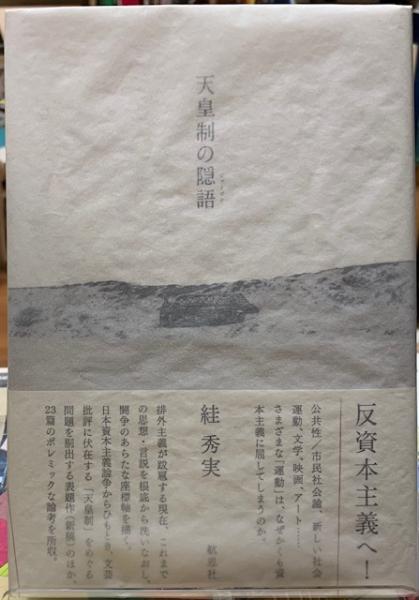 天皇制の隠語
ジャーゴン
反資本主義へ!
公共性/市民社会論、新しい社会
運動、文学、映画、アート……
さまざまな「運動」は、なぜかくも資
本主義に屈してしまうのか。
絓 秀実
航思社
排外主義が跋扈する現在、これまで
の思想・言説を根底から洗いなおし、
闘争のあらたな座標軸を描く。
日本資本主義論争からひもとき、文芸
批評に伏在する「天皇制」をめぐる
問題を剔出する表題作(新稿)のほか、
23篇のポレミックな論考を所収。